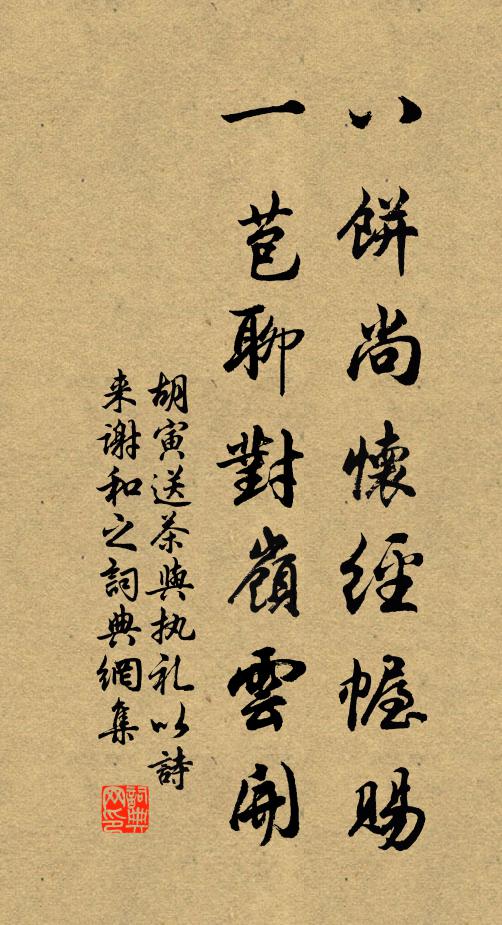 八餅尚懷經幄賜
一苞聊對嶺雲開
胡寅送茶與执礼以詩
来謝和之詞典網集
詞典网印